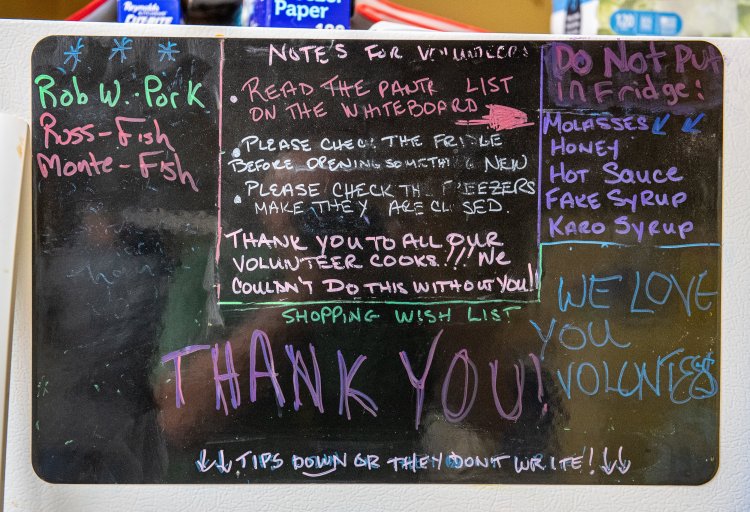 Reynolds
Freezer
Paper
120
* * *
Rob W. - Pork
Russ - Fish
Monte - Fish
NOTE'S FOR VOLUNTEERS
• READ THE PANTR LIST
ON THE WHITEBOARD
• PLEASE CHECK THE FRIDGE
BEFORE OPENING SOMETHING NEW
• PLEASE CHECK THE FREEZERS
MAKE THEY ARE CLOSED.
THANK YOU TO ALL OUR
VOLUNTEER COOKS!!! WE
COULDN'T DO THIS WITHOUT YOU!!
DO NOT PUT
in Fridge:
MOLASSES ↙ ↙
HONEY
HOT SAUCE
FAKE SYRUP
KARO SYRUP
SHOPPING WISH LIST
THANK YOU!
WE LOVE
YOU
↓↓ TIPS DOWN OR THEY DON'T WRITE! ↓↓